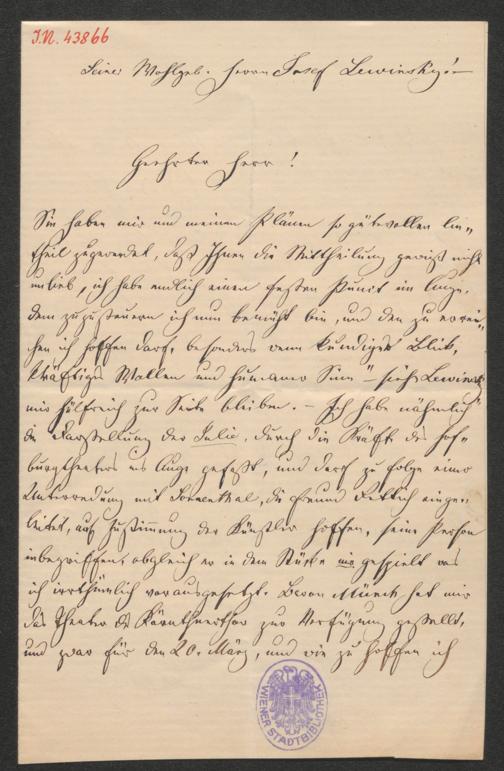 I.N. 43866
Seiner Wohlgeb. Herrn Josef Lewinsky!
Geehrter Herr!
Sie haben mir und meinen Plänen so gütevollen An„
theil zugewendet, daß Ihnen die Mittheilung gewiß nicht
unlieb, ich habe endlich einen festen Punct im Auge,
dem zuzusteuern ich nun bemüht bin, und den zu errei„
chen ich hoffen darf, besonders wenn kundiger Blik,
kräftiges Wollen und humaner Sinn – Lewinsky
mir hülfreich zur Seite bleiben. – Ich habe nähmlich
die Darstellung der Julie, durch die Kräfte des Hof„
burgtheaters ins Auge gefaßt, und darf zu folge einer
Unterredung mit Sonnenthal, die Freund Dettlich einge„
leitet, auf Zustimmung der Künstler hoffen, seine Person
inbegriffen, obgleich er in dem Stücke nie gespielt was
ich irrthümlich vorausgesetzt. Baron Münch hat mir
das Theater des Kärnthnerthor zur Verfügung gestellt,
und zwar für den 20. März, und wie zu hoffen ich
WIENER STADTBIBLIOTHEK